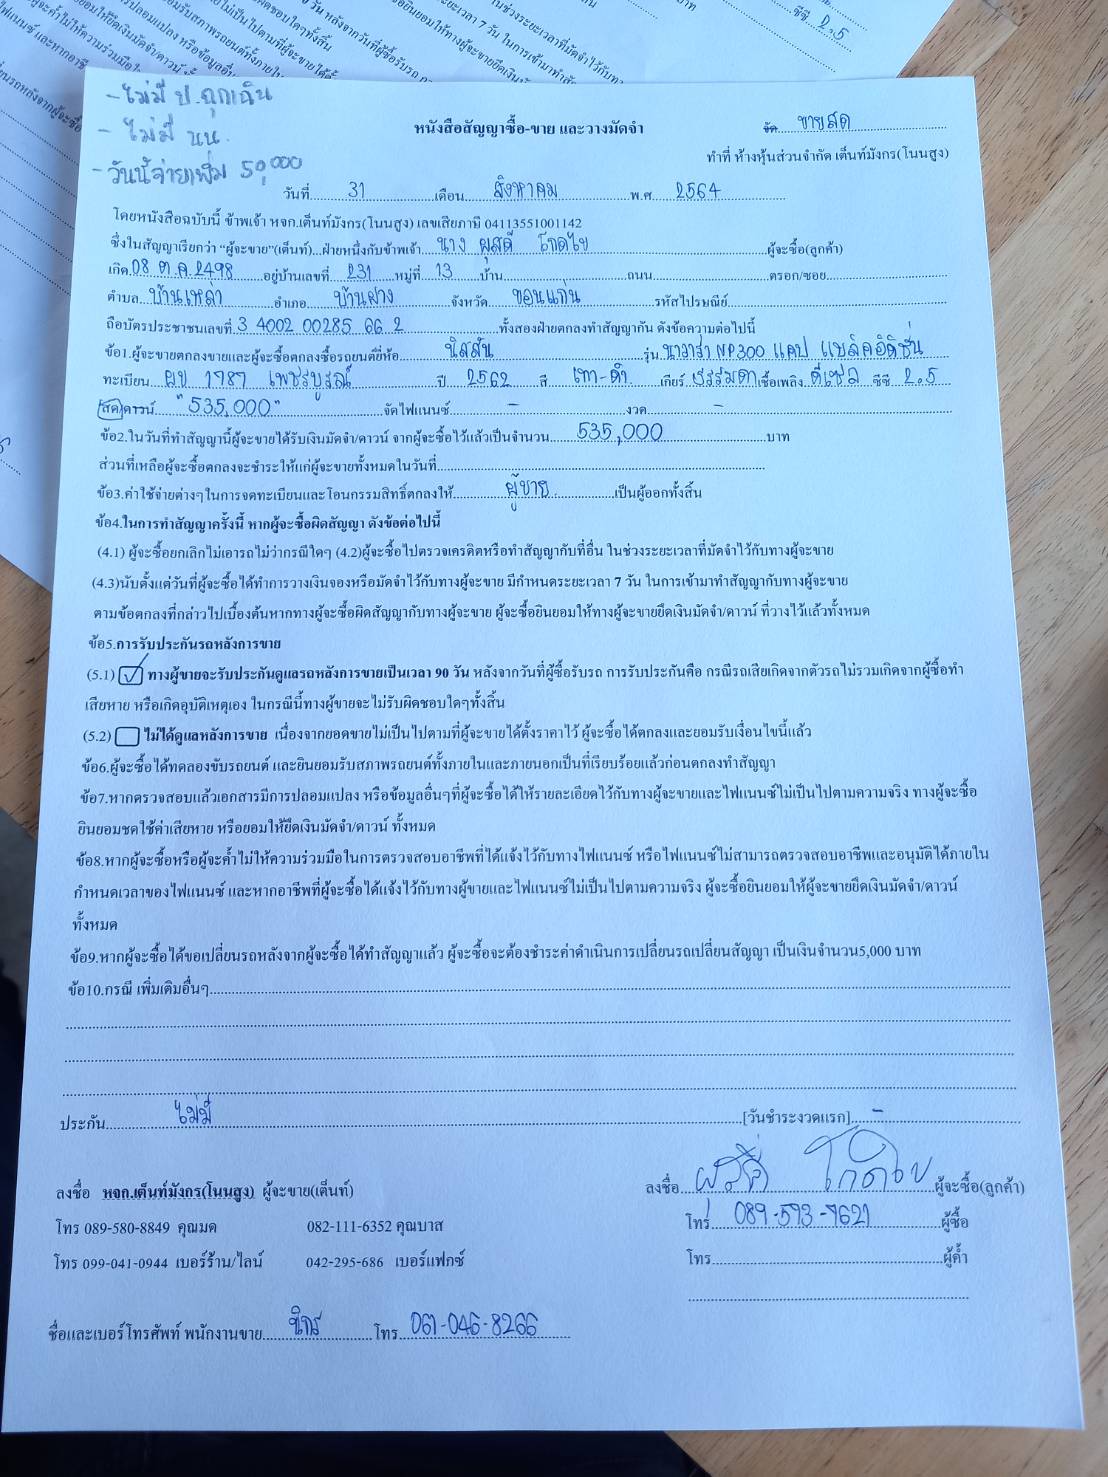 - ไม่มี ป.ฉุกเฉิน
- ไม่มี นน.
- วันนี้จ่ายเพิ่ม 50,000
หนังสือสัญญาซื้อ-ขาย และวางมัดจำ
จัด ขายสด
ทำที่ ห้างหุ้นส่วนจำกัด เต็นท์มังกร(โนนสูง)
วันที่ 31 เดือน สิงหาคม พ.ศ. 2564
โดยหนังสือฉบับนี้ ข้าพเจ้า หจก.เต็นท์มังกร(โนนสูง) เลขเสียภาษี 04113551001142
ซึ่งในสัญญาเรียกว่า "ผู้จะขาย"(เต็นท์)...ฝ่ายหนึ่งกับข้าพเจ้า นาง ผุสดี โกดไข ผู้จะซื้อ(ลูกค้า)
เกิด 08 ต.ค. 2498 อยู่บ้านเลขที่ 231 หมู่ที่ 13 บ้าน ถนน ตรอก/ซอย
ตำบล บ้านเหล่า อำเภอ บ้านฝาง จังหวัด ขอนแก่น รหัสไปรษณีย์
ถือบัตรประชาชนเลขที่ 3 4002 00285 66 2 ทั้งสองฝ่ายตกลงทำสัญญากัน ดังข้อความต่อไปนี้
ข้อ1.ผู้จะขายตกลงขายและผู้จะซื้อตกลงซื้อรถยนต์ยี่ห้อ นิสสัน รุ่น นาวาร่า NP300 แคป แบล็คอิดิชั่น
ทะเบียน ผข 1787 เพชรบูรณ์ ปี 2562 สี เทา-ดำ เกียร์ ธรรมดา เชื้อเพลิง ดีเซล ซีซี 2.5
(สด)ดาวน์ "535,000" จัดไฟแนนซ์ - งวด -
ข้อ2.ในวันที่ทำสัญญานี้ผู้จะขายได้รับเงินมัดจำ/ดาวน์ จากผู้จะซื้อไว้แล้วเป็นจำนวน 535,000 บาท
ส่วนที่เหลือผู้จะซื้อตกลงจะชำระให้แก่ผู้จะขายทั้งหมดในวันที่
ข้อ3.ค่าใช้จ่ายต่างๆในการจดทะเบียนและโอนกรรมสิทธิ์ตกลงให้ ผู้ขาย เป็นผู้ออกทั้งสิ้น
ข้อ4.ในการทำสัญญาครั้งนี้ หากผู้จะซื้อผิดสัญญา ดังข้อต่อไปนี้
(4.1) ผู้จะซื้อยกเลิกไม่เอารถไม่ว่ากรณีใดๆ (4.2)ผู้จะซื้อไปตรวจเครดิตหรือทำสัญญากับที่อื่น ในช่วงระยะเวลาที่มัดจำไว้กับทางผู้จะขาย
(4.3)นับตั้งแต่วันที่ผู้จะซื้อได้ทำการวางเงินจองหรือมัดจำไว้กับทางผู้จะขาย มีกำหนดระยะเวลา 7 วัน ในการเข้ามาทำสัญญากับทางผู้จะขาย
ตามข้อตกลงที่กล่าวไปเบื้องต้นหากทางผู้จะซื้อผิดสัญญากับทางผู้จะขาย ผู้จะซื้อยินยอมให้ทางผู้จะขายยึดเงินมัดจำ/ดาวน์ ที่วางไว้แล้วทั้งหมด
ข้อ5.การรับประกันรถหลังการขาย
(5.1) ทางผู้ขายจะรับประกันดูแลรถหลังการขายเป็นเวลา 90 วัน หลังจากวันที่ผู้ซื้อรับรถ การรับประกันคือ กรณีรถเสียเกิดจากตัวรถไม่รวมเกิดจากผู้ซื้อทำ
เสียหาย หรือเกิดอุบัติเหตุเอง ในกรณีนี้ทางผู้ขายจะไม่รับผิดชอบใดๆทั้งสิ้น
(5.2) ไม่ได้ดูแลหลังการขาย เนื่องจากยอดขายไม่เป็นไปตามที่ผู้จะขายได้ตั้งราคาไว้ ผู้จะซื้อได้ตกลงและยอมรับเงื่อนไขนี้แล้ว
ข้อ6.ผู้จะซื้อได้ทดลองขับรถยนต์ และยินยอมรับสภาพรถยนต์ทั้งภายในและภายนอกเป็นที่เรียบร้อยแล้วก่อนตกลงทำสัญญา
ข้อ7.หากตรวจสอบแล้วเอกสารมีการปลอมแปลง หรือข้อมูลอื่นๆที่ผู้จะซื้อได้ให้รายละเอียดไว้กับทางผู้จะขายและไฟแนนซ์ไม่เป็นไปตามความจริง ทางผู้จะซื้อ
ยินยอมชดใช้ค่าเสียหาย หรือยอมให้ยึดเงินมัดจำ/ดาวน์ ทั้งหมด
ข้อ8.หากผู้จะซื้อหรือผู้จะค้ำไม่ให้ความร่วมมือในการตรวจสอบอาชีพที่ได้แจ้งไว้กับทางไฟแนนซ์ หรือไฟแนนซ์ไม่สามารถตรวจสอบอาชีพและอนุมัติได้ภายใน
กำหนดเวลาของไฟแนนซ์ และหากอาชีพที่ผู้จะซื้อได้แจ้งไว้กับทางผู้ขายและไฟแนนซ์ไม่เป็นไปตามความจริง ผู้จะซื้อยินยอมให้ผู้จะขายยึดเงินมัดจำ/ดาวน์
ทั้งหมด
ข้อ9.หากผู้จะซื้อได้ขอเปลี่ยนรถหลังจากผู้จะซื้อได้ทำสัญญาแล้ว ผู้จะซื้อจะต้องชำระค่าดำเนินการเปลี่ยนรถเปลี่ยนสัญญา เป็นเงินจำนวน5,000 บาท
ข้อ10.กรณี เพิ่มเติมอื่นๆ
ประกัน ไม่มี [วันชำระงวดแรก] -
ลงชื่อ หจก.เต็นท์มังกร(โนนสูง) ผู้จะขาย(เต็นท์) ลงชื่อ ผุสดี โกดไข ผู้จะซื้อ(ลูกค้า)
โทร 089-580-8849 คุณมด 082-111-6352 คุณบาส โทร 089-593-9621 ผู้ซื้อ
โทร 099-041-0944 เบอร์ร้าน/ไลน์ 042-295-686 เบอร์แฟกซ์ โทร ผู้ค้ำ
ชื่อและเบอร์โทรศัพท์ พนักงานขาย นิกร โทร 061-046-8266